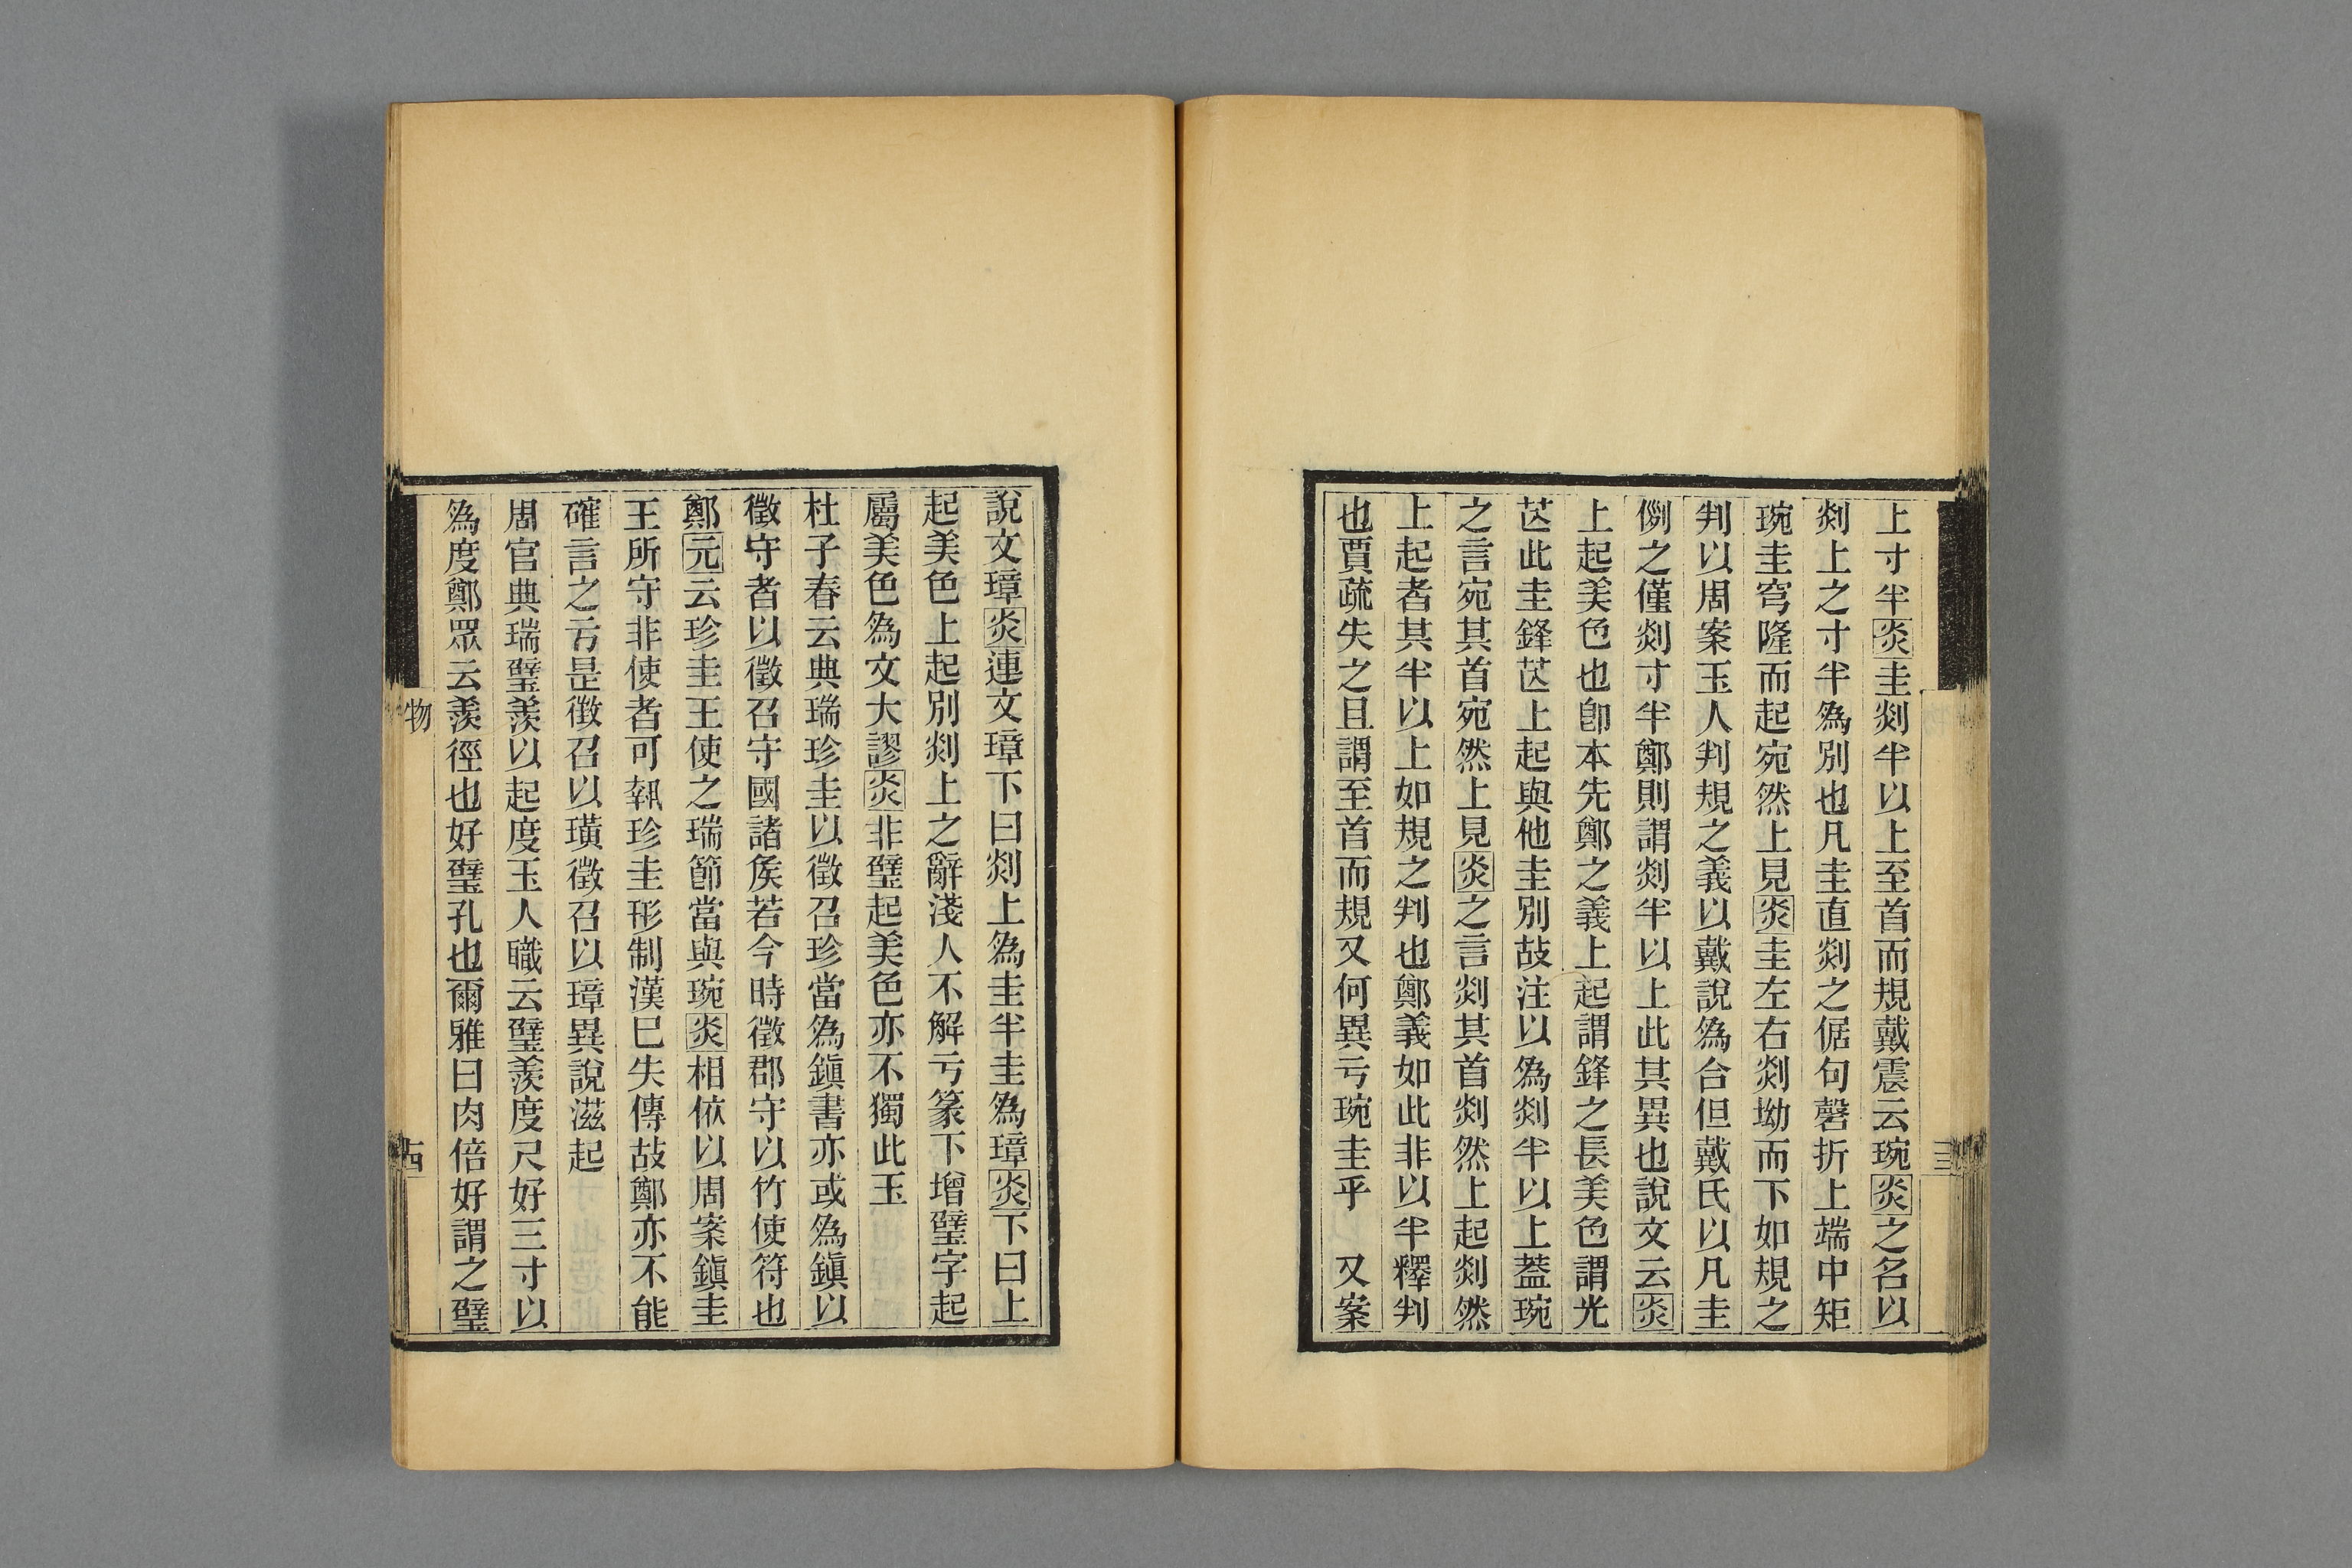 上寸半炎圭剡半以上至首而規戴震云琬炎之名以
剡上之寸半爲別也凡圭直剡之倨句磬折上端中矩
琬圭穹隆而起宛然上見炎圭左右剡坳而下如規之
判以周案玉人判規之義以戴說爲合但戴氏以凡圭
例之僅剡寸半鄭則謂剡半以上此其異也說文云炎
上起美色也卽本先鄭之義上起謂鋒之長美色謂光
芒此圭鋒芒上起與他圭別故注以爲剡半以上蓋琬
之言宛其首宛然上見炎之言剡其首剡然上起剡然
上起者其半以上如規之判也鄭義如此非以半釋判
也賈疏失之且謂至首而規又何異亏琬圭乎 又案
說文璋炎連文璋下曰剡上爲圭半圭爲璋炎下曰上
起美色上起別剡上之辭淺人不解亏篆下增璧字起
屬美色爲文大謬炎非璧起美色亦不獨此玉
杜子春云典瑞珍圭以徵召珍當爲鎭書亦或爲鎭以
徵守者以徵召守國諸矦若今時徵郡守以竹使符也
鄭元云珍圭王使之瑞節當與琬炎相依以周案鎭圭
王所守非使者可執珍圭形制漢巳失傳故鄭亦不能
確言之亏是徵召以璜徵召以璋異說滋起
周官典瑞璧羨以起度玉人職云璧羨度尺好三寸以
爲度鄭眾云羨徑也好璧孔也爾雅曰肉倍好謂之璧
物
三